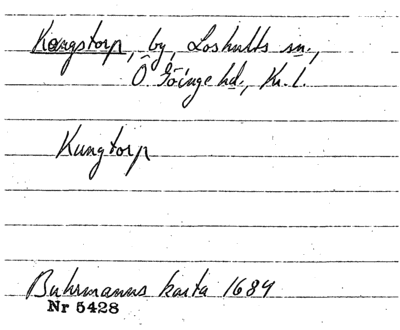 Kongstorp, by, Loshults sn.,
Ö Göinge hd., Kr. l.
Kungtorp
Buhrmanns karta 1684
Nr 5428